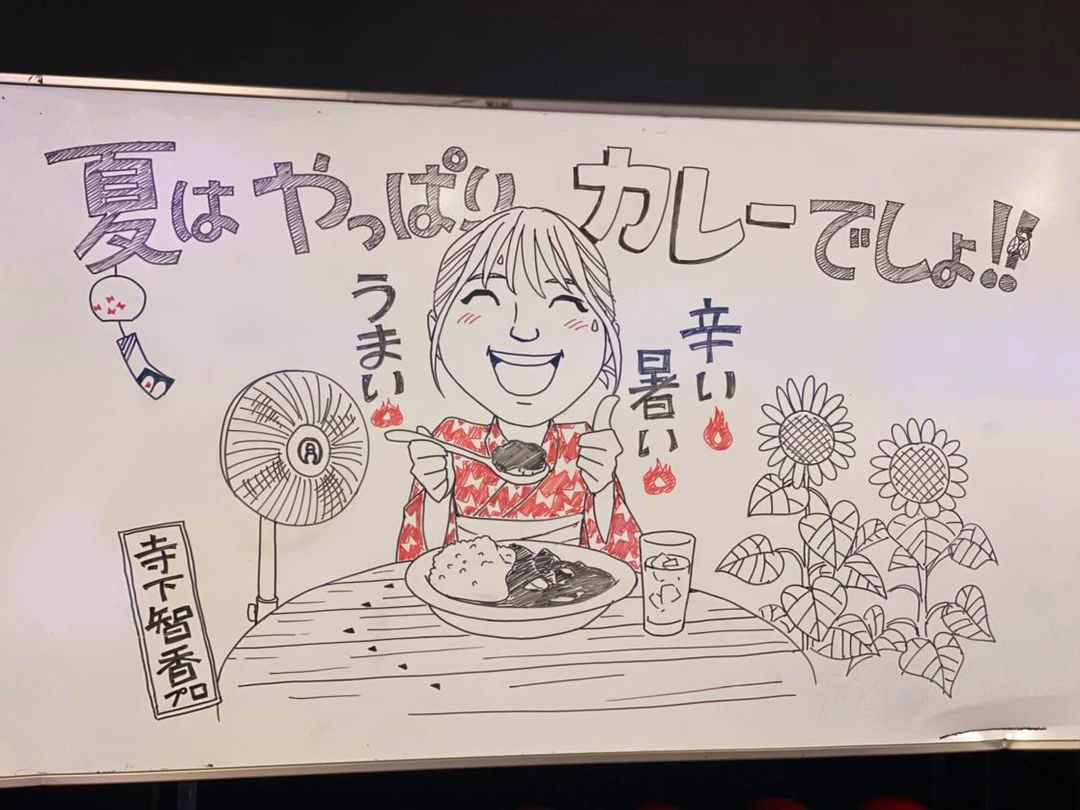 夏はやっぱりカレーでしょ!!
うまい
辛い
暑い
月
寺下智香プロ